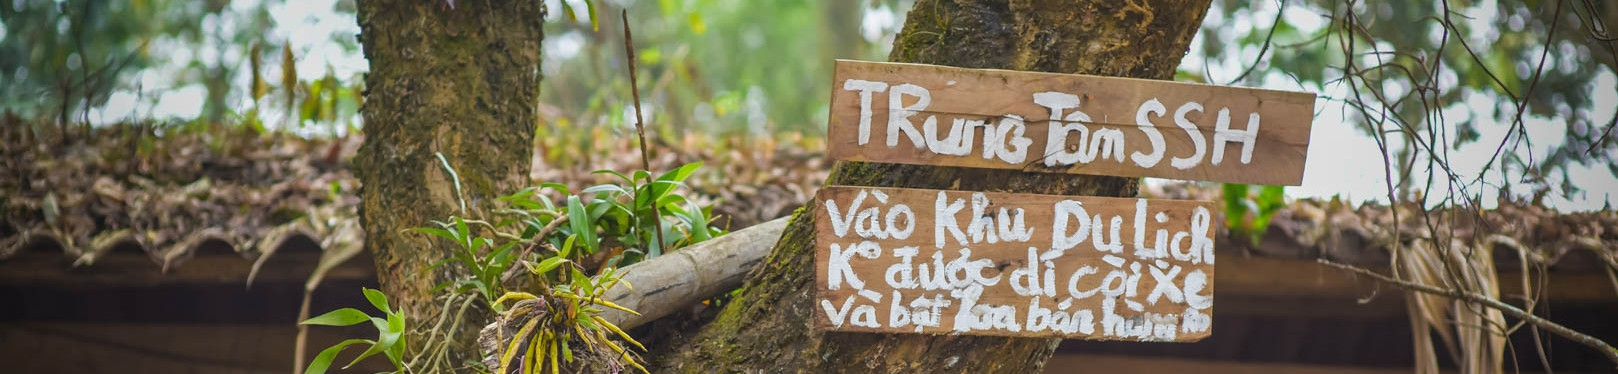 TRung Tâm SSH
Vào Khu Du Lịch
Kº được dí còi Xe
và bật loa bán hàng